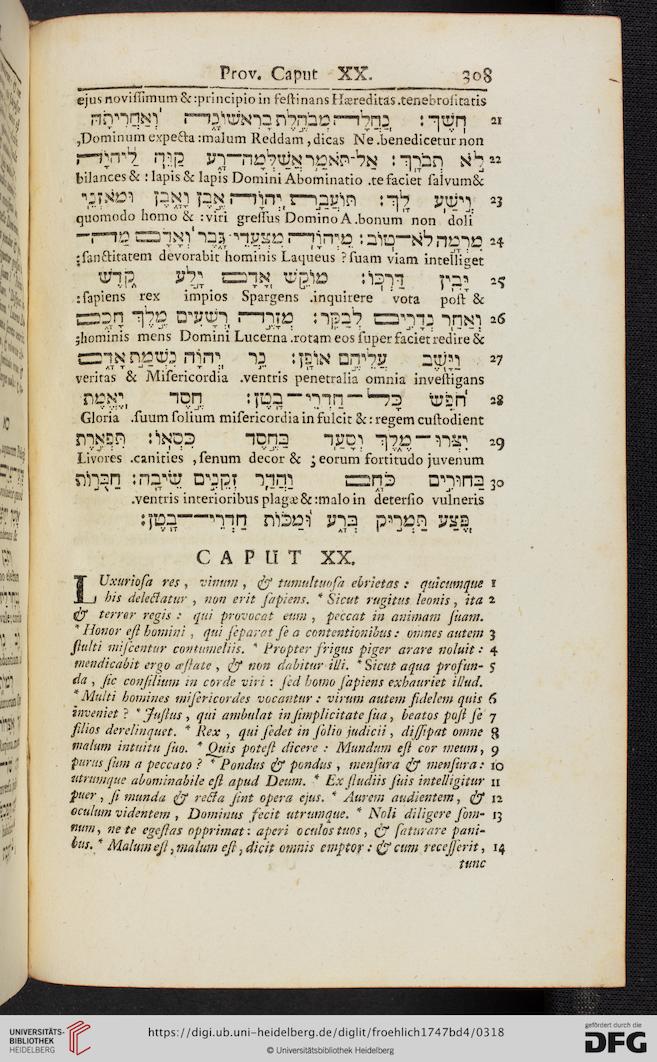 Prov. Caput XX. 308
ejus novissimum & :principio in festinans Hæreditas .tenebrositatis
חֹשֶׁךְ : נַחֲלָה מְבֹהֶלֶת בָּרִאשׁוֹנָה וְאַחֲרִיתָהּ 21
,Dominum expecta :malum Reddam , dicas Ne .benedicetur non
לֹא תְבֹרָךְ : אַל־תֹּאמַר אֲשַׁלְּמָה־רָע קַוֵּה לַיהוָה 22
bilances & : lapis & lapis Domini Abominatio .te faciet salvum&
וְיֹשַׁע לָךְ : תּוֹעֲבַת יְהוָה אֶבֶן וָאָבֶן וּמֹאזְנֵי 23
quomodo homo & :viri gressus Domino A .bonum non doli
מִרְמָה לֹא־טוֹב : מֵיְהוָה מִצְעֲדֵי־גָבֶר וְאָדָם מַה־ 24
:sanctitatem devorabit hominis Laqueus ? suam viam intelliget
יָּבִין דַּרְכּוֹ : מוֹקֵשׁ אָדָם יָלַע קֹדֶשׁ 25
:sapiens rex impios Spargens .inquirere vota post &
וְאַחַר נְדָרִים לְבַקֵּר : מְזָרֶה רְשָׁעִים מֶלֶךְ חָכָם 26
;hominis mens Domini Lucerna .rotam eos super faciet redire &
וַיָּשֶׁב עֲלֵיהֶם אוֹפָן : נֵר יְהוָה נִשְׁמַת אָדָם 27
veritas & Misericordia .ventris penetralia omnia investigans
חֹפֵשׂ כָּל־חַדְרֵי־בָטֶן : חֶסֶד וֶאֱמֶת 28
Gloria .suum solium misericordia in fulcit & : regem custodient
יִצְּרוּ־מֶלֶךְ וְסָעַד בַּחֶסֶד כִּסְאוֹ : תִּפְאֶרֶת 29
Livores .canities , senum decor & ; eorum fortitudo juvenum
בַּחוּרִים כֹּחָם וַהֲדַר זְקֵנִים שֵׂיבָה : חַבֻּרוֹת 30
.ventris interioribus plagæ & :malo in detersio vulneris
פֶּצַע תַּמְרִיק בְּרָע וּמַכּוֹת חַדְרֵי־בָטֶן :
CAPUT XX.
LUxuriosa res , vinum , & tumultuosa ebrietas : quicumque 1
his delectatur , non erit sapiens. * Sicut rugitus leonis , ita 2
& terrer regis : qui provocat eum , peccat in animam suam.
* Honor est homini , qui separat se a contentionibus : omnes autem 3
stulti miscentur contumeliis. * Propter frigus piger arare noluit : 4
mendicabit ergo æstate , & non dabitur illi. * Sicut aqua profun- 5
da , sic consilium in corde viri : sed homo sapiens exhauriet illud.
* Multi homines misericordes vocantur : virum autem fidelem quis 6
inveniet ? * Justus , qui ambulat in simplicitate sua , beatos post se 7
filios derelinquet. * Rex , qui sedet in solio judicii , dissipat omne 8
malum intuitu suo. * Quis potest dicere : Mundum est cor meum , 9
purus sum a peccato ? * Pondus & pondus , mensura & mensura : 10
utrumque abominabile est apud Deum. * Ex studiis suis intelligitur 11
puer , si munda & recta sint opera ejus. * Aurem audientem , & 12
oculum videntem , Dominus fecit utrumque. * Noli diligere som- 13
num, ne te egestas opprimat : aperi oculos tuos , & saturare pani-
bus. * Malum est , malum est , dicit omnis emptor : & cum recesserit , 14
tunc
UNIVERSITÄTS-
BIBLIOTHEK
HEIDELBERG
https://digi.ub.uni-heidelberg.de/diglit/froehlich1747bd4/0318
© Universitätsbibliothek Heidelberg
gefördert durch die
DFG